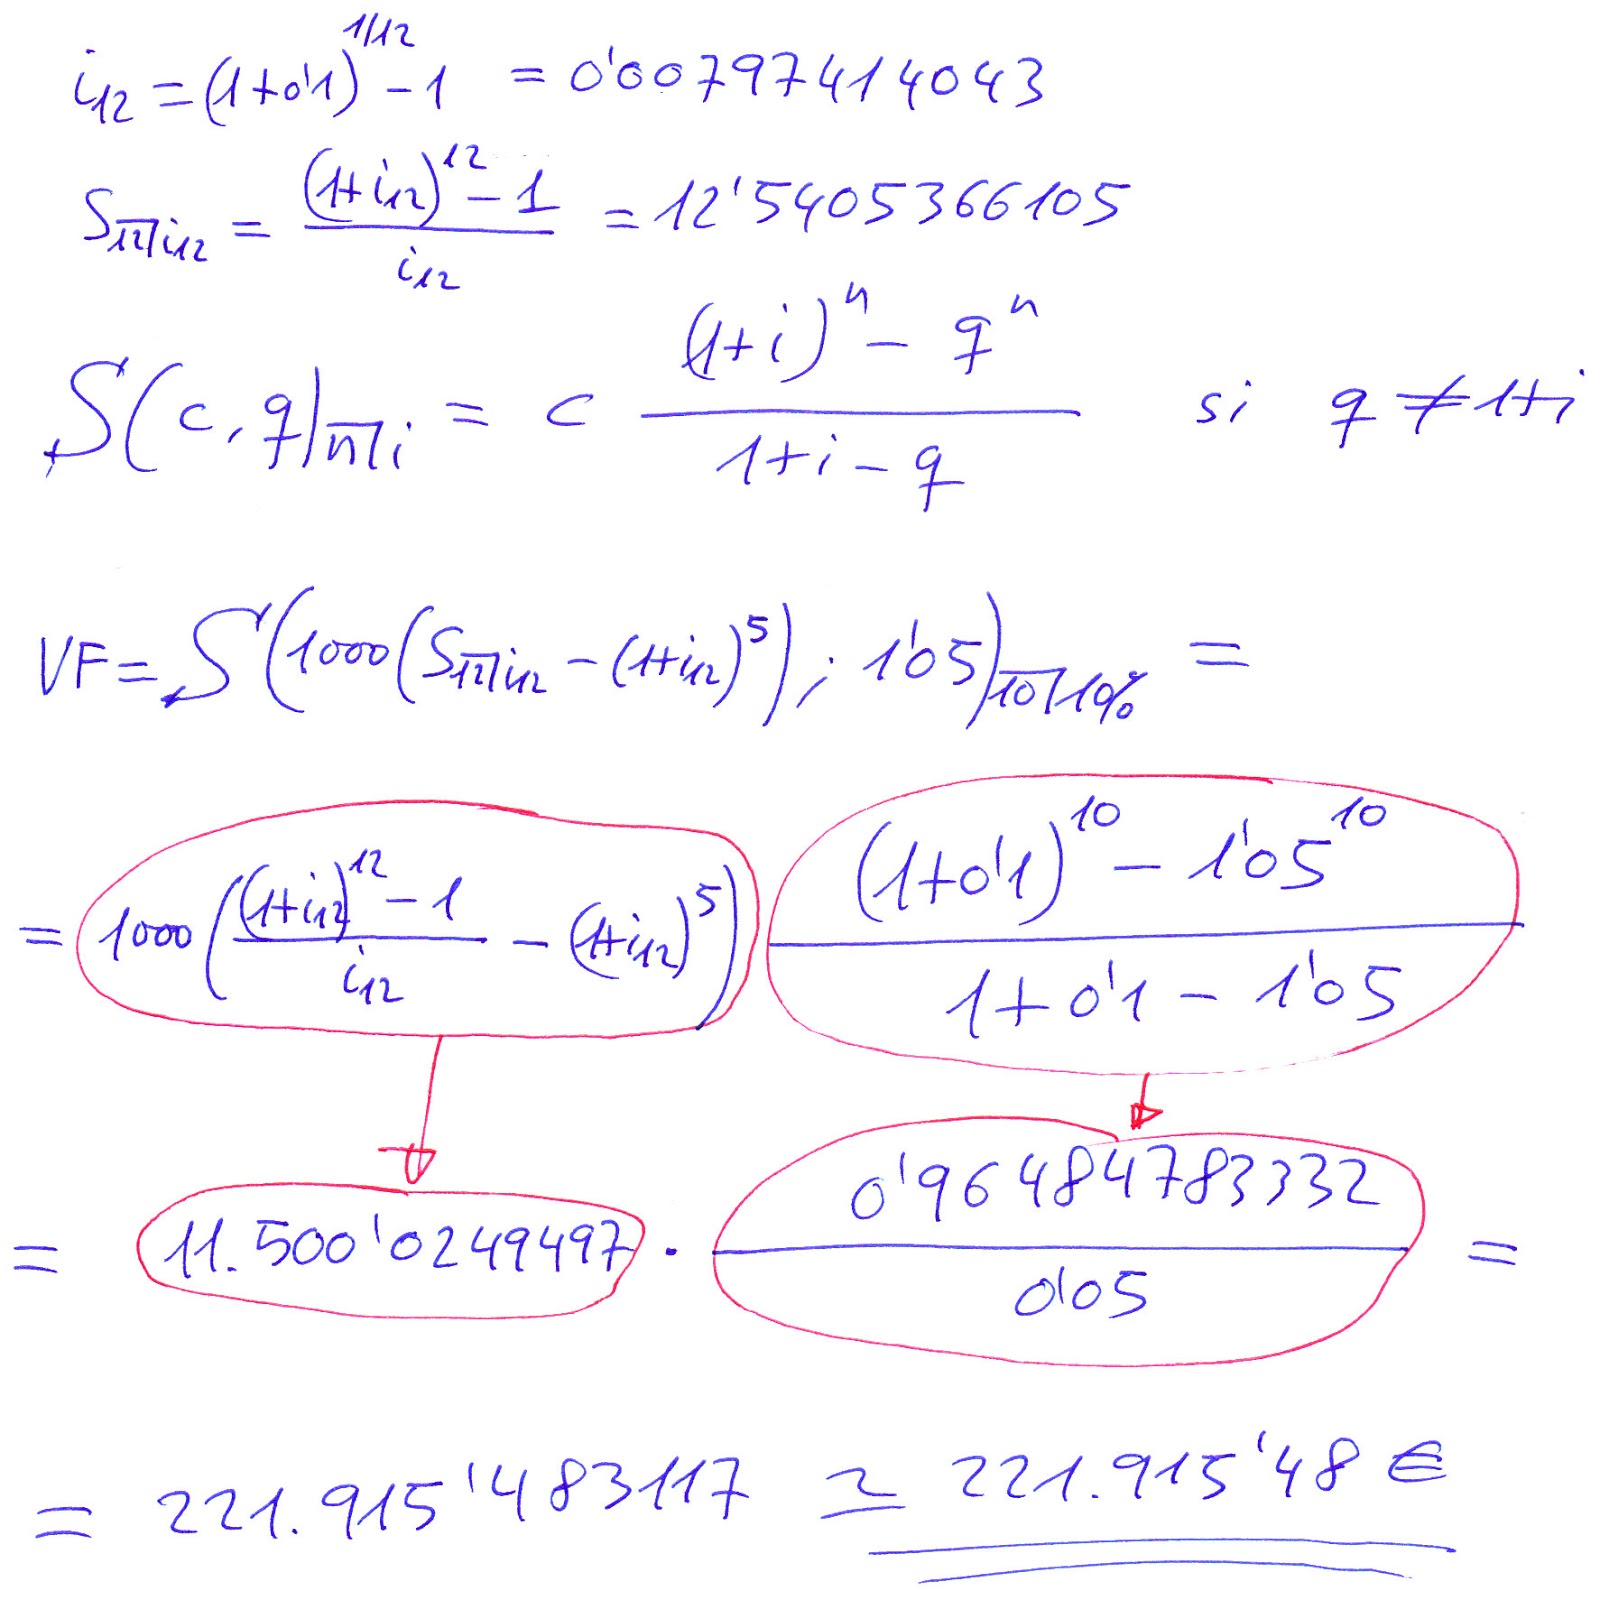 i₁₂ = (1+0'1)^1/12 - 1 = 0'00797414043
S₁₂⌉i₁₂ = ((1+i₁₂)^12 - 1)/i₁₂ = 12'5405366105
S(c, q)n⌉i = c ((1+i)^n - q^n)/(1+i-q) si q ≠ 1+i
VF = S(1000(S₁₂⌉i₁₂ - (1+i₁₂)^5); 1'05)10⌉10% =
= 1000(((1+i₁₂)^12 - 1)/i₁₂ - (1+i₁₂)^5) ((1+0'1)^10 - 1'05^10)/(1+0'1 - 1'05)
= 11.500'0249497 · 0'96484783332/0'05 =
= 221.915'483117 ≃ 221.915'48 €